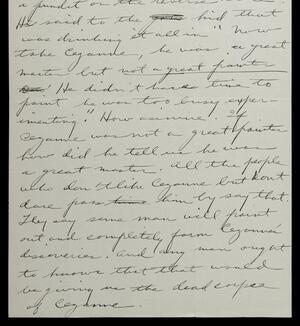 a pundit on the reverse
He said to the kid that
was drinking it all in "Now
take Cezanne, he was a great
master but not a great painter
He didn't have time to
paint he was too busy exper-
imenting." How asinine. If
Cezanne was not a great painter
how did he tell us he was
a great master. All the people
who don't like Cezanne but don't
dare pass him by say that.
They say some man will paint
out and completely form Cezanne's
discoveries. And any man ought
to know that that would
be giving us the dead corpse
of Cezanne.